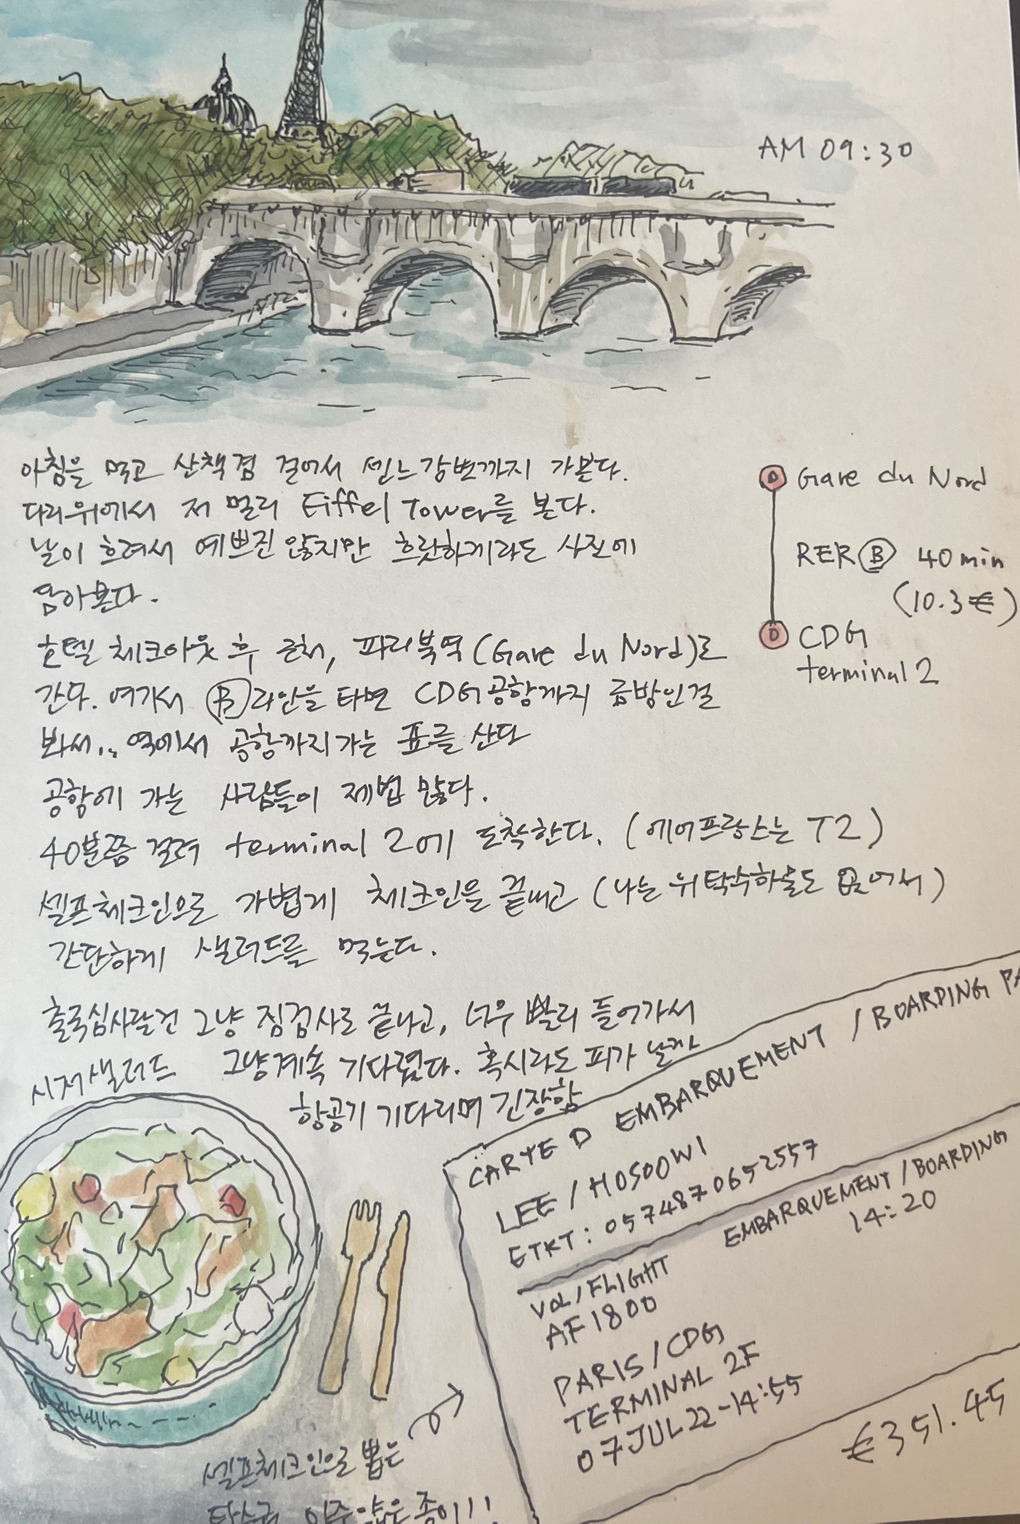 AM 09:30
아침을 먹고 산책겸 걸어서 센느강변까지 가본다.
다리위에서 저 멀리 Eiffel Tower를 본다.
날이 흐려서 예쁘진 않지만 흐릿하게라도 사진에
담아본다.
Gare du Nord
RER Ⓑ 40min
(10.3€)
CDG
terminal 2
호텔 체크아웃 후 근처, 파리북역(Gare du Nord)로
간다. 여기서 Ⓑ라인을 타면 CDG공항까지 금방인걸
봐서.. 역에서 공항까지가는 표를 산다
공항에 가는 사람들이 제법 많다.
40분쯤 걸려 terminal 2에 도착한다. (에어프랑스는 T2)
셀프체크인으로 가볍게 체크인을 끝내고 (나는 위탁수하물도 없어서)
간단하게 샐러드를 먹는다.
출국심사랄건 그냥 짐검사로 끝나고, 너무 빨리 들어가서
그냥계속 기다렸다. 혹시라도 피가 날까
항공기 기다리며 긴장함
시저샐러드
CARTE D EMBARQUEMENT / BOARDING PA
LEE / HOSOOWI
ETKT : 0574870652557
EMBARQUEMENT / BOARDING
14:20
VOL / FLIGHT
AF1800
PARIS / CDG
TERMINAL 2F
07JUL22-14:55
€351.45
셀프체크인으로 뽑은
탑승권 아주얇은종이!!